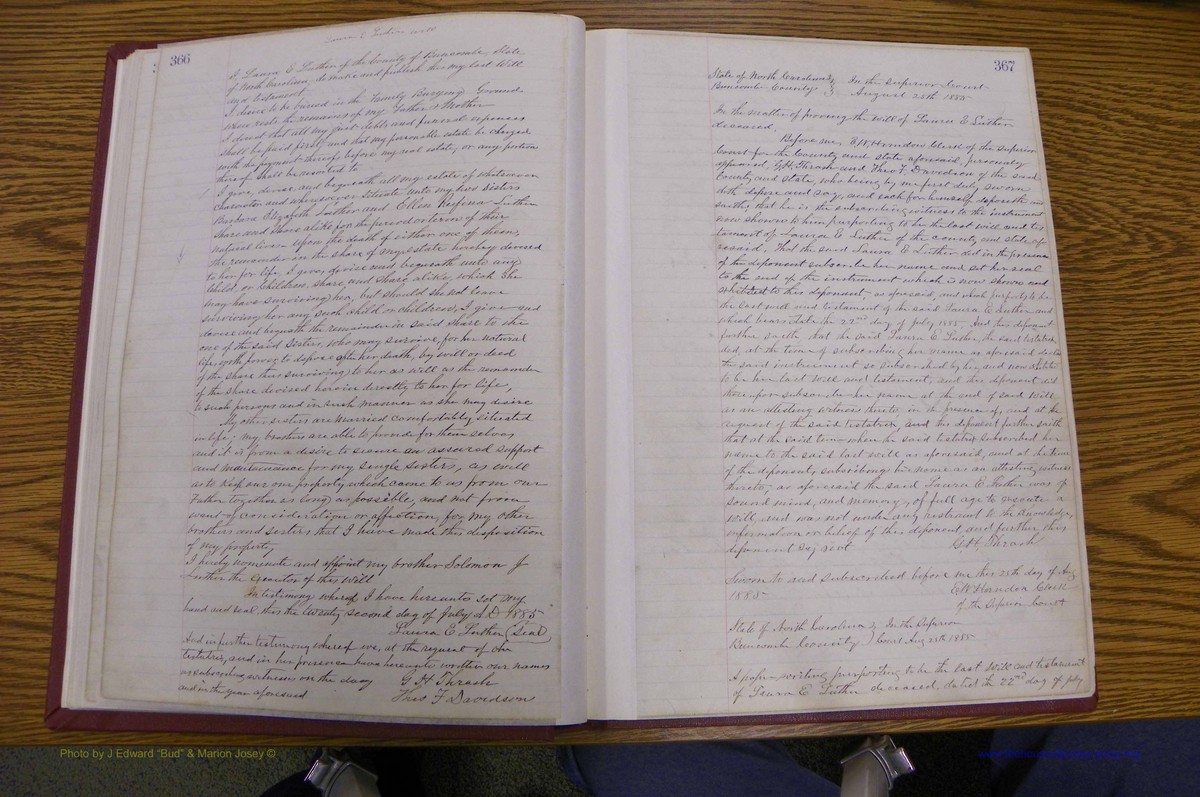 Laura E Luthers will
366
I, Laura E Luther of the County of Buncombe State
of North Carolina, do make and publish this my last Will
and testament
I desire to be buried in the Family Burying Ground
where rests the remains of my Father & Mother
I direct that all my just debts and funeral expenses
shall be paid first, and that my personalty estate be charged
with the payment thereof before my real estate, or any portion
thereof shall be resorted to
I give, devise and bequeath all my estate of whatsoever
character and wheresoever situate unto my two sisters
Barbara Elizabeth Luther and Ellen Regina Luther
share and share alike for the period or term of their
natural lives. Upon the death of either one of them,
the remainder in the share of my estate hereby devised
to her for life, I give, devise and bequeath unto any
child or children, share and share alike, which she
may have surviving her, but should she not leave
surviving her any such child or children, I give and
devise and bequeath the remainder in said share to the
one of the said sisters, who may survive, for her natural
life, with power to dispose after her death, by will or deed
of the share thus surviving to her as well as the remainder
of the share devised herein directly to her for life,
to such persons and in such manner as she may desire
My other sisters are married comfortably situated
in life; my brothers are able to provide for themselves
and it is from a desire to secure an assured support
and maintainance for my single sisters, as well
as to keep our property which came to us from our
Father together as long as possible, and not from
want of consideration or affection, for my other
brothers and sisters that I have made this disposition
of my property
I hereby nominate and appoint my brother Solomon J
Luther the Executor of this will
In testimony whereof I have hereunto set my
hand and seal this the twenty second day of July A.D. 1885
Laura E Luther (Seal)
And in further testimony whereof we, at the request of the
testatrix, and in her presence have hereunto written our names
as subscribing witnesses on the day
and in the year aforesaid
G H Thrash
Theo F Davidson
367
State of North Carolina } In the Superior Court
Buncombe County } August 25th 1885
In the matter of proving the will of Laura E Luther
deceased.
Before me, E W Herndon Clerk of the Superior
Court for the County and state aforesaid, personally
appeared G.H. Thrash and Theo F. Davidson of the said
County and state, who being by me first duly sworn
doth depose and say, and each for himself deposeth and
saith; that he is the subscribing witness to the instrument
now shown to him purporting to be the last will and tes
tament of Laura E Luther of the county and state, af
oresaid; That the said Laura E Luther did in the presence
of the deponent subscribe her name and set her seal
to the end of the instrument which is now shown and
exhibited to this deponent, as aforesaid, and which purports to be
the last will and testament of the said Laura E Luther and
which bears date the 22nd day of July 1885. And this deponent
further saith, that he said Laura E Luther the said testatrix,
did, at the time of subscribing her name as aforesaid declare
the said instrument so subscribed by her and now exhibited
to be her last will and testament, and this deponent did
thereupon subscribe her name at the end of said Will
as an attesting witness thereto, in the presence of, and at the
request of the said testatrix, and this deponent further saith
that at the said time when he said testatrix subscribed her
name to the said last will as aforesaid, and at the time
of the deponents subscribing his name as an attesting witness
thereto, as aforesaid the said Laura E Luther was of
sound mind, and memory, of full age to execute a
will, and was not under any restraint to the knowledge,
information or belief of this deponent and further this
deponent say not
G H Thrash
Sworn to and subscribed before me this 25th day of Aug
1885
E W Herndon Clerk
of the Superior Court
State of North Carolina } In the Superior
Buncombe County } Court Aug 25th 1885
A paper-writing purporting to be the last will and testament
of Laura E Luther deceased, dated the 22nd day of July
Photo by J Edward "Bud" & Marion Josey ©